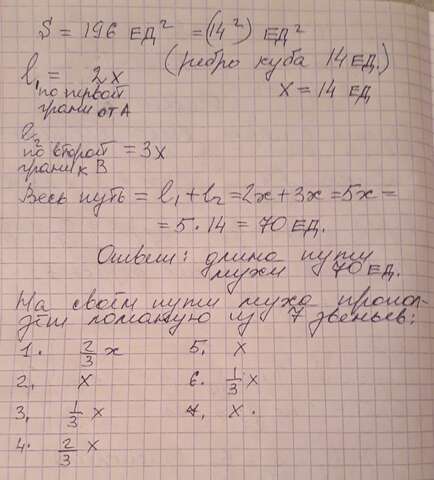 S = 196 ЕД² = (14²) ЕД²
(ребро куба 14 ЕД.)
l₁ = 2x
x = 14 ЕД
по первой
грани от A
l₂
по второй = 3x
грани к B
Весь путь = l₁ + l₂ = 2x + 3x = 5x =
= 5 · 14 = 70 ЕД.
Ответ: длина пути
мухи 70 ЕД.
На своём пути муха пропол-
зёт ломаную из 7 звеньев:
1. 2/3 x 5. x
2. x 6. 1/3 x
3. 1/3 x 7. x.
4. 2/3 x